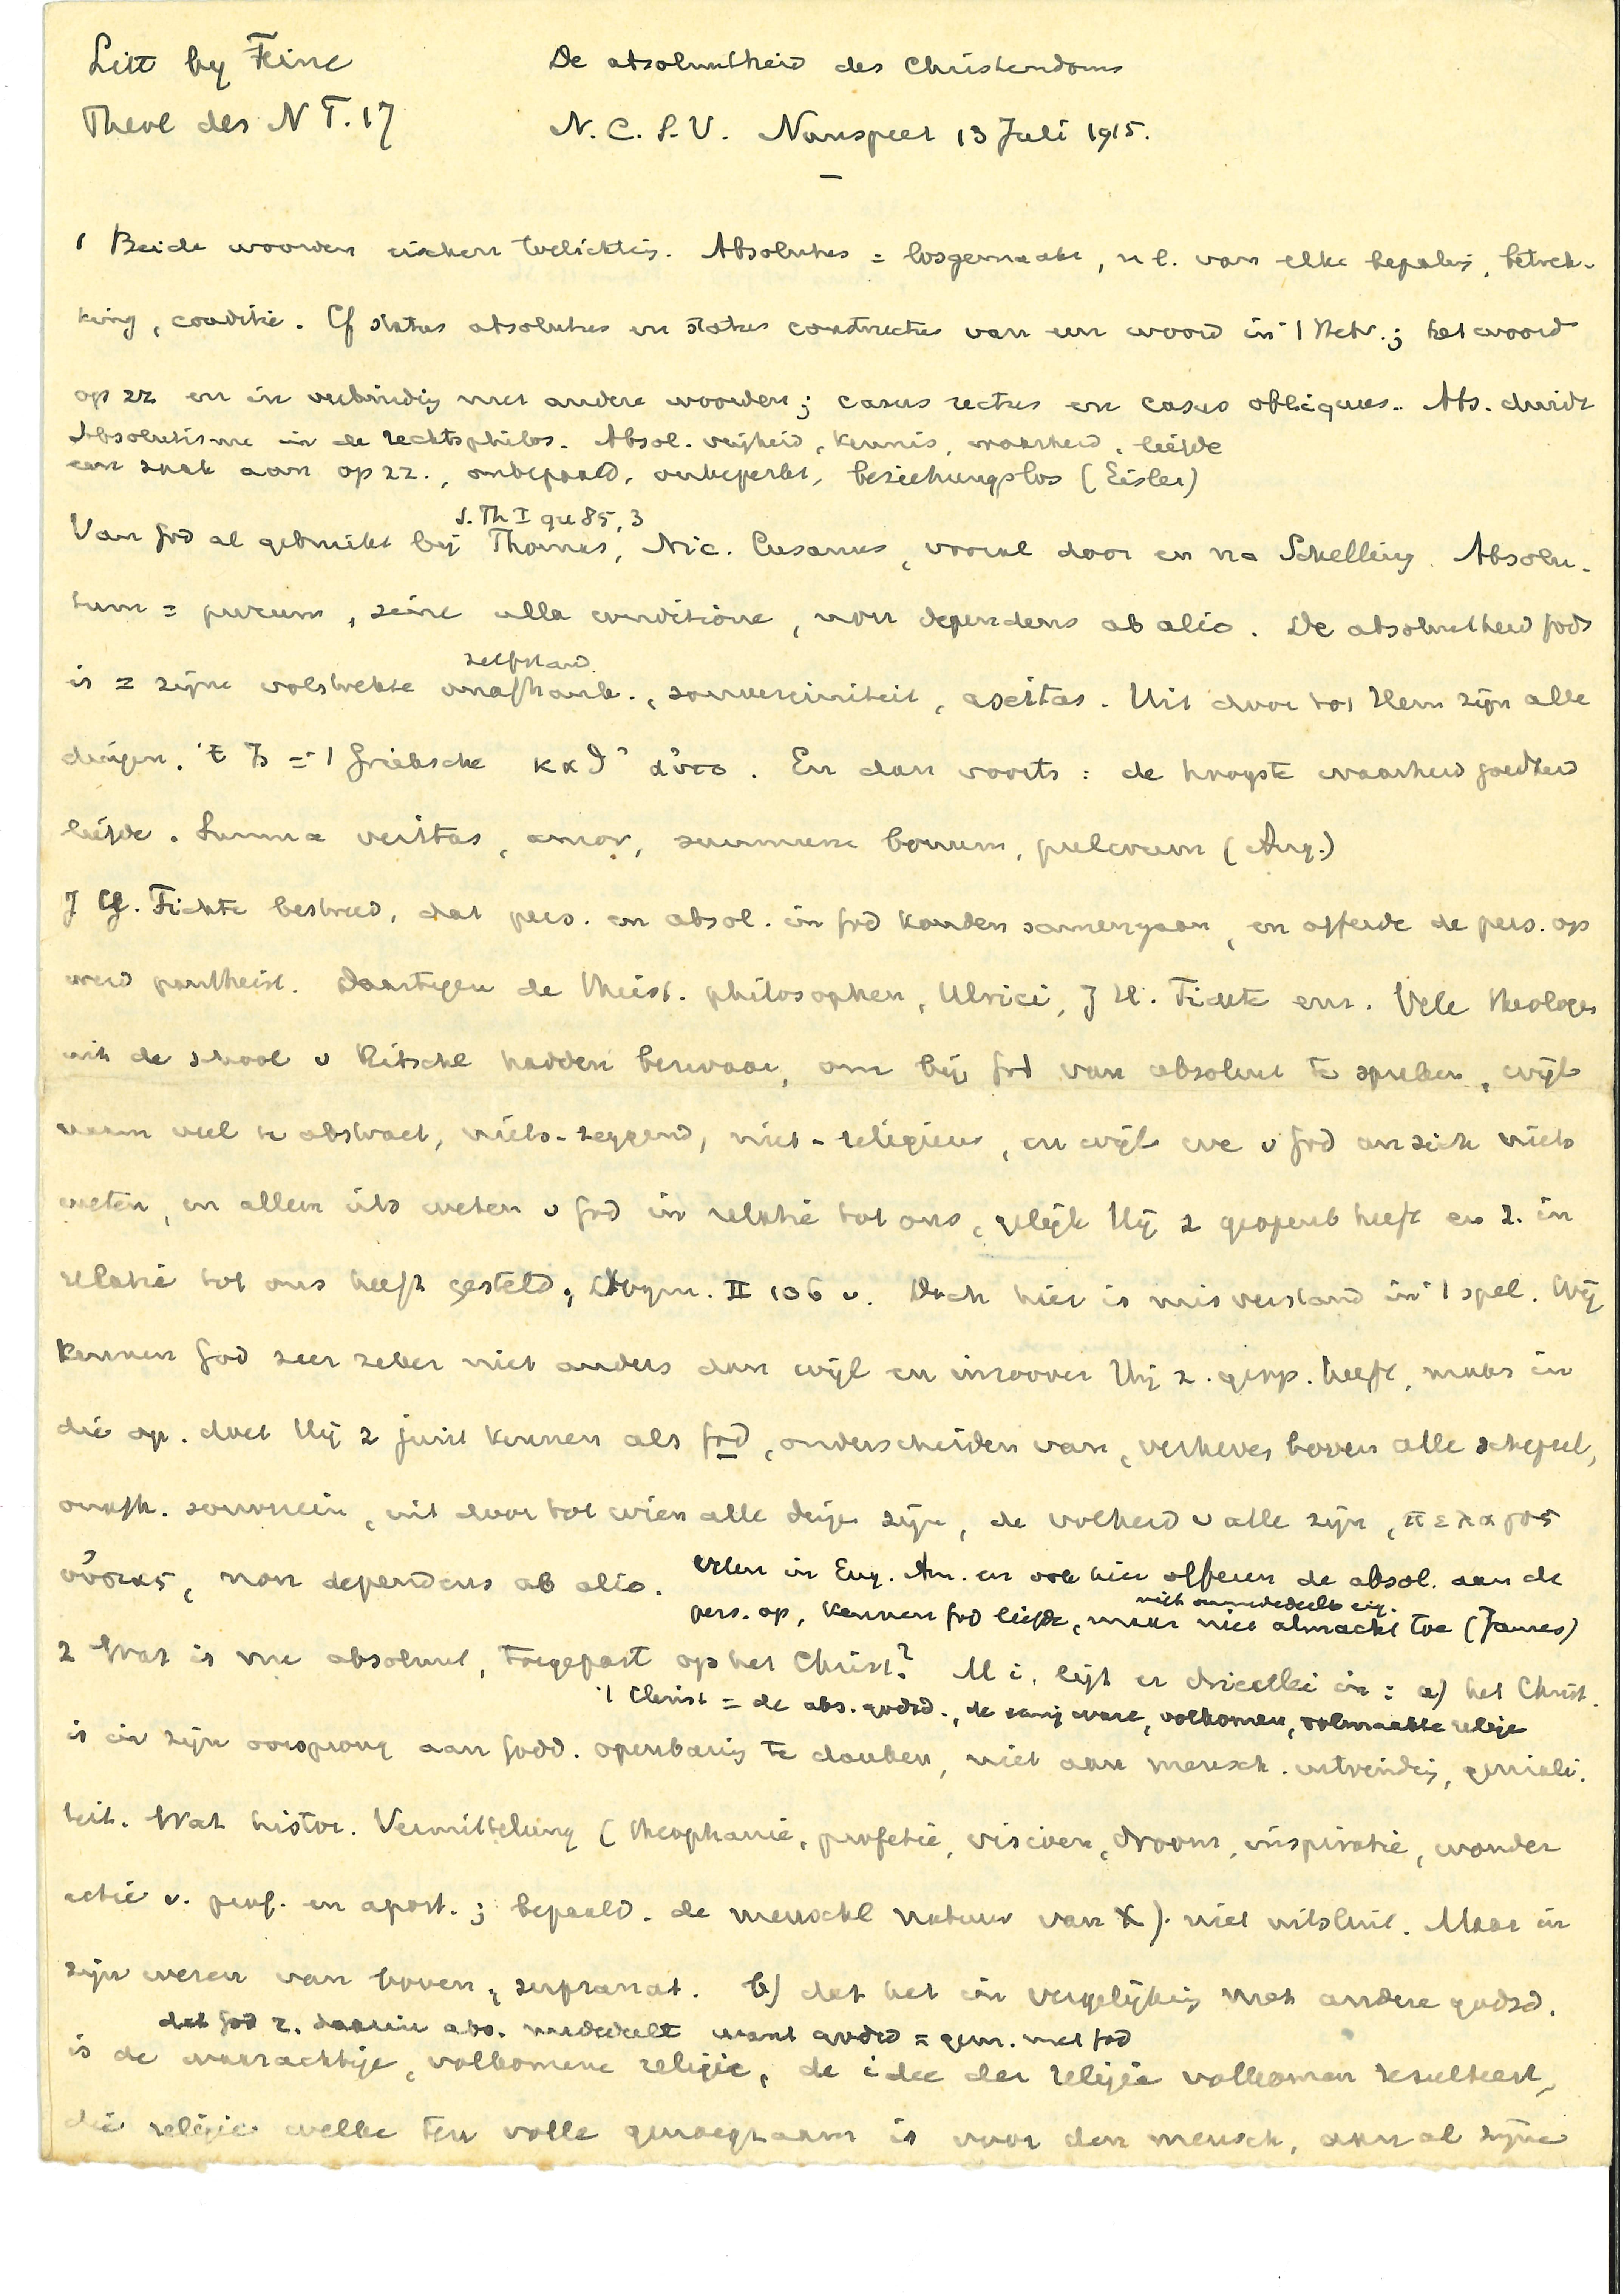 Litt by Feine
Theol des N T. 17
De absoluutheid des Christendoms
N. C. S. V. Nunspeet 13 Juli 1915.
1 Beide woorden eischen toelichtig. Absolutus = losgemaakt, nl. van elke bepalig, betrek-
king, conditie. Cf status absolutus en status constructus van een woord in 't Hebr.; het woord
op zz en in verbindig met andere woorden; casus rectus en casus obliquus. Abs. duidt
Absolutisme in de rechtsphilos. Absol. vrijheid, kennis, waarheid, liefde
een zaak aan op zz., onbepaald, onbeperkt, beziehungslos (Eisler)
S. Th I qu 85, 3
Van God al gebruikt bij Thomas, Nic. Cusanus, vooral door en na Schelling. Absolu-
tum = purum, sine ulla conditione, non dependens ab alio. De absoluutheid Gods
zelfstand.
is = zijne volstrekte onafhank., souvereiniteit, aseitas. Uit door tot Hem zijn alle
dingen. = 't Grieksche καθ' αὑτο. En dan voorts: de hoogste waarheid goedheid
liefde. Summa veritas, amor, summum bonum, pulcrum (Aug.)
J G. Fichte bestreed, dat pers. en absol. in God konden samengaan, en offerde de pers. op
werd pantheist. Daartegen de theist. philosophen, Ulrici, J H. Fichte enz. Vele theologen
uit de school v Ritschl hadden bezwaar, om bij God van absoluut te spreken, wijl
naam veel te abstract, niets-zeggend, niet-religieus, en wijl we v God an sich niets
weten, en alleen iets weten v God in relatie tot ons, gelijk Hij z geopenb heeft en z. in
relatie tot ons heeft gesteld, Dogm. II 106 v. Doch hier is misverstand in 't spel. Wij
kennen God zeer zeker niet anders dan wijl en inzoover Hij z. geop. heeft, maar in
die op. doet Hij z juist kennen als God, onderscheiden van, verheven boven alle schepsel,
onafh. souverein, uit door tot wien alle dingen zijn, de volheid v alle zijn, πελαγος
οὐσιας, non dependens ab alio. Velen in Eng. Am. en ook hier offeren de absol. aan de
niet onmededeelb eig.
pers. op, kennen God liefde, maar niet almacht toe (James)
2 Wat is nu absoluut, toegepast op het Christ? M i. ligt er drieërlei in: a) het Christ.
't Christ = de abs. godsd., de eenig ware, volkomen, volmaakte religie
is in zijn oorsprong aan Godd. openbarig te danken, niet aan mensch. uitvindig, geniali-
teit. Wat histor. Vermittelung (theophanie, profetie, visioen, droom, inspiratie, wonder
actie v. prof. en apost.; bepaald. de menschel natuur van X) niet uitsluit. Maar in
zijn wezen van boven, supranat. b) dat het in vergelijkig met andere godsd.
dat God z. daarin abs. mededeelt want godsd = gem. met God
is de waarachtige, volkomene religie, de idee der religie volkomen realiseert,
die religie welke ten volle genoegzaam is voor den mensch, aan al zijne